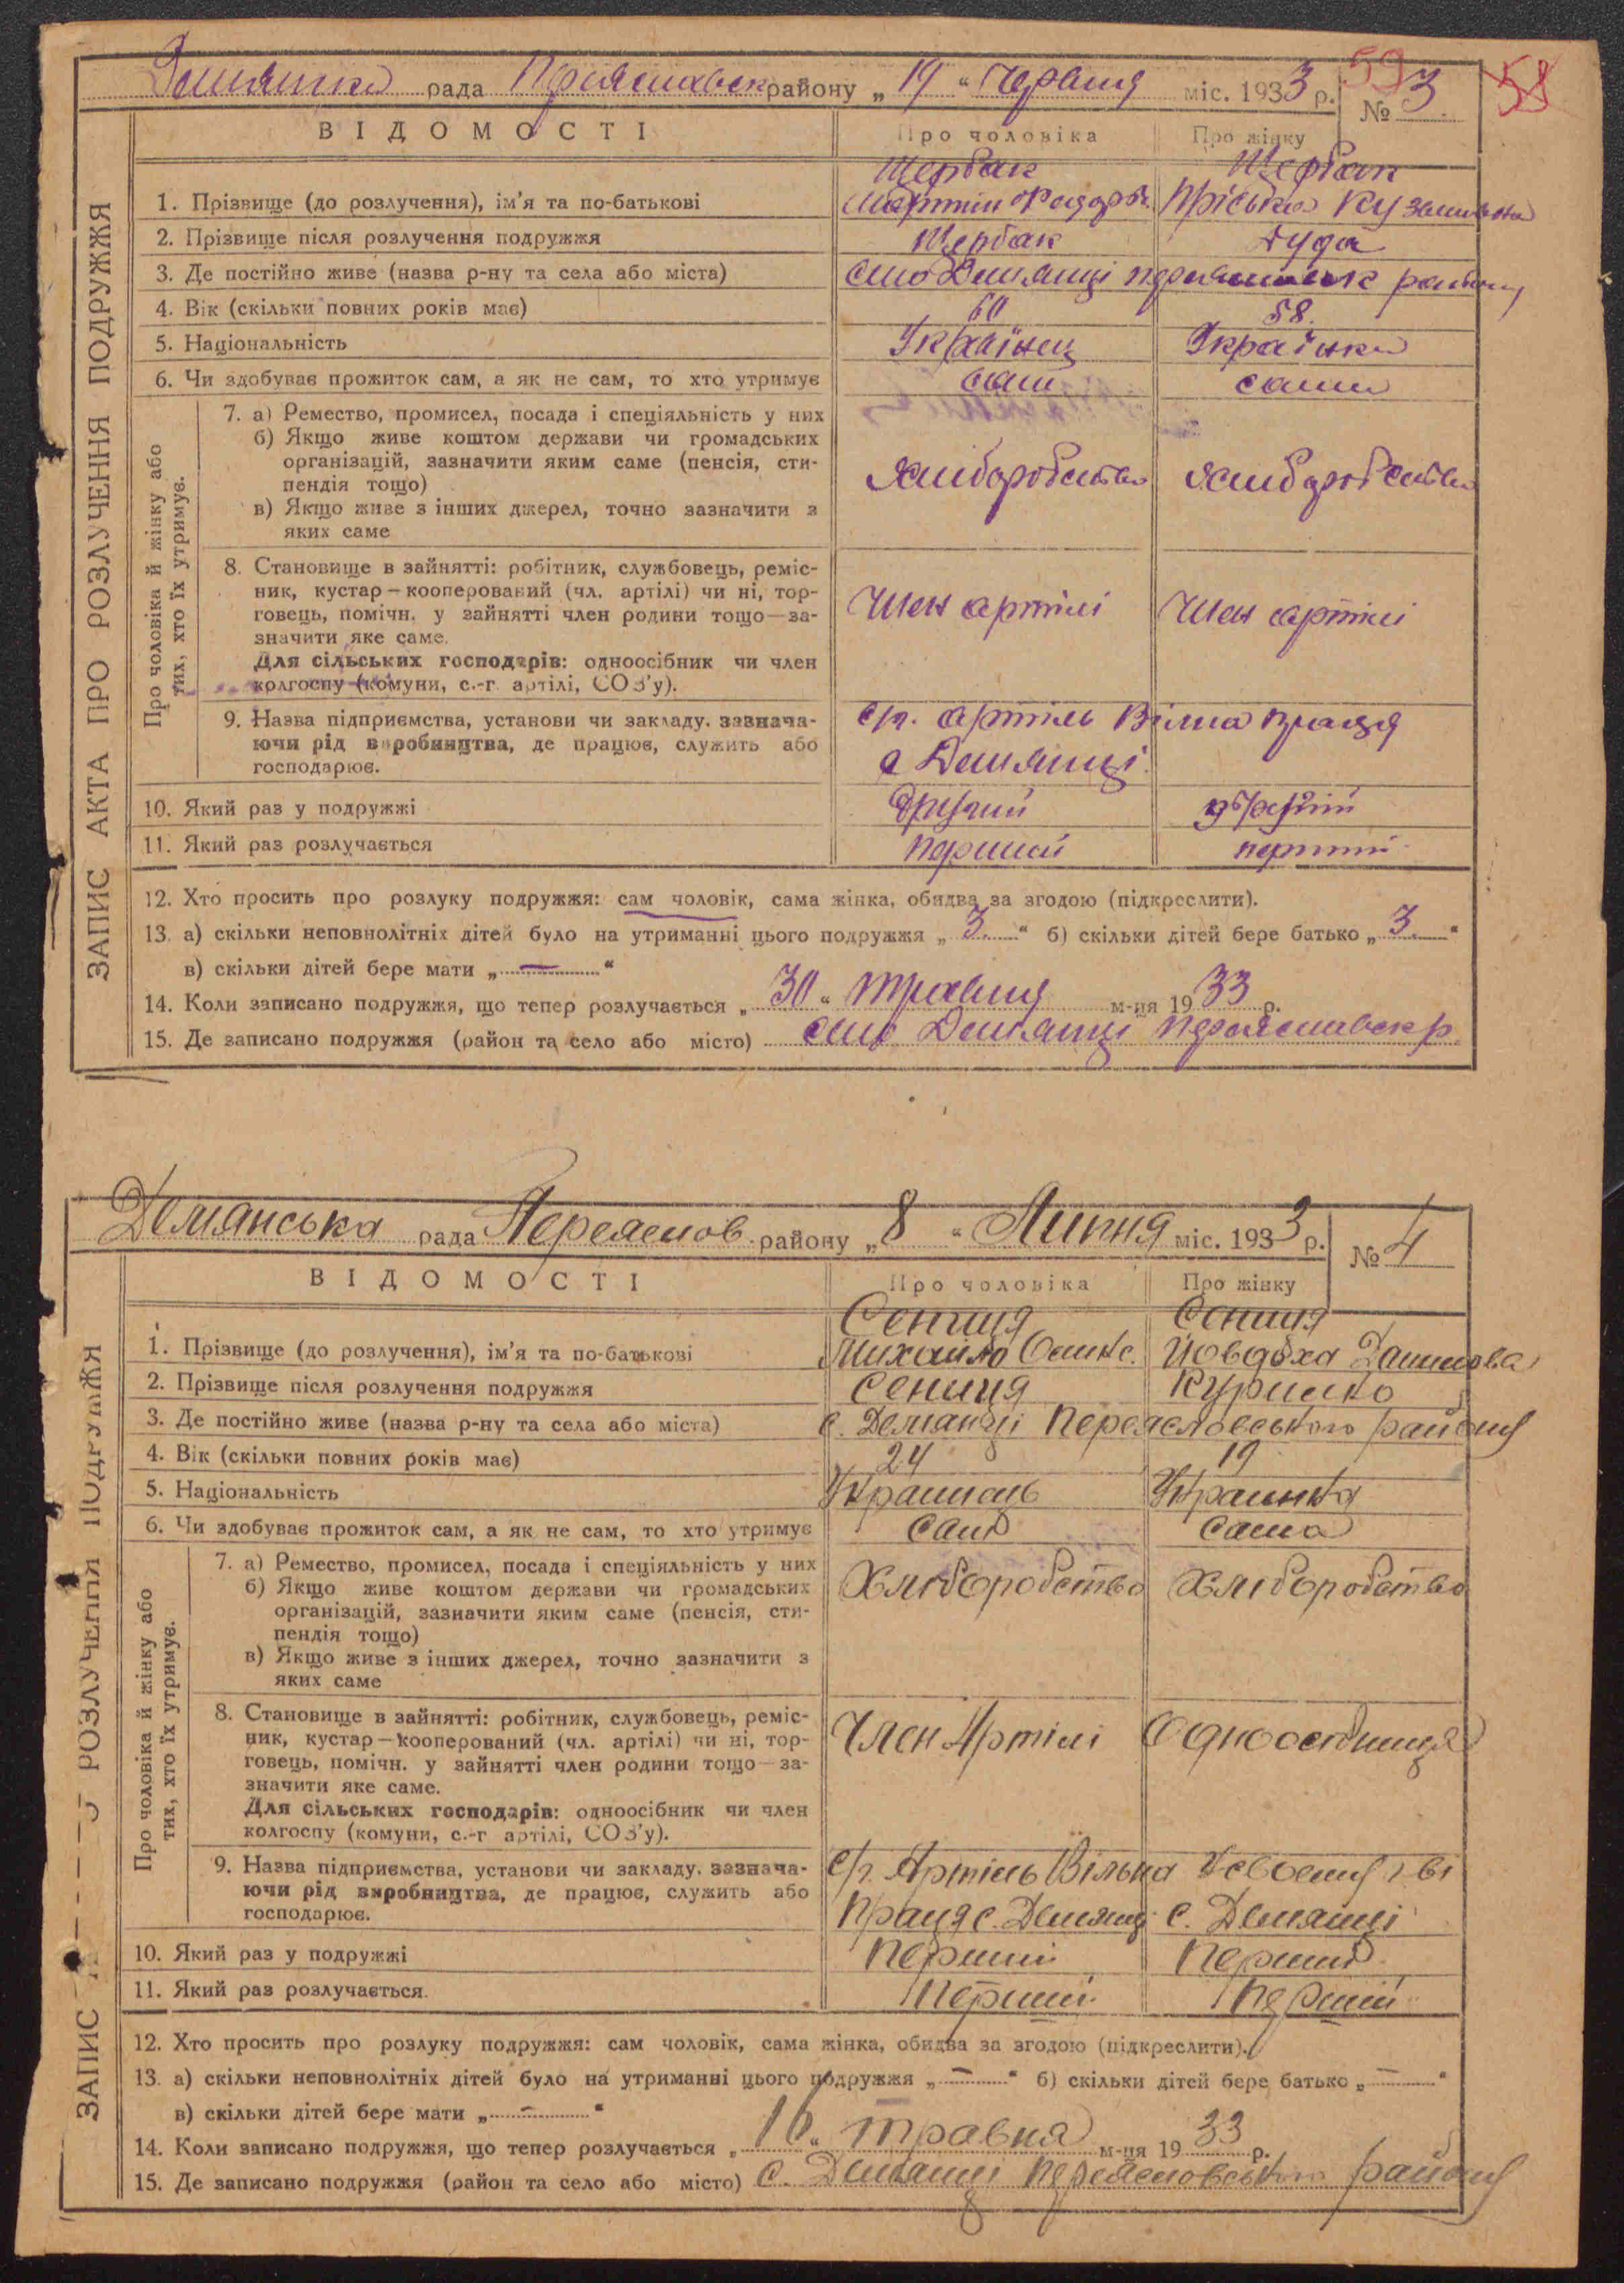 рада району „19“ Червня міс. 1933 р. № 3
59 58
ВІДОМОСТІ Про чоловіка Про жінку
Щербак Щербак
1. Прізвище (до розлучення), ім'я та по-батькові Мартин Федоров. Пріська Кузьмивна
2. Прізвище після розлучення подружжя Щербак Дуда
3. Де постійно живе (назва р-ну та села або міста) село Демянці району
4. Вік (скільки повних років має) 60 58.
5. Національність Українец Українка
6. Чи здобуває прожиток сам, а як не сам, то хто утримує сам сама
Про чоловіка й жінку або тих, хто їх утримує.
7. а) Ремество, промисел, посада і спеціяльність у них
б) Якщо живе коштом держави чи громадських
організацій, зазначити яким саме (пенсія, сти-
пендія тощо) Хлиборобства хлиборобства
в) Якщо живе з інших джерел, точно зазначити з
яких саме
8. Становище в зайнятті: робітник, службовець, реміс-
ник, кустар—кооперований (чл. артілі) чи ні, тор- Член артілі Член артілі
говець, помічн. у зайнятті член родини тощо—за-
значити яке саме.
Для сільських господарів: одноосібник чи член
колгоспу (комуни, с.-г артілі, СОЗ'у).
9. Назва підприємства, установи чи закладу. зазнача- с/г. артіль Вілна праця
ючи рід виробництва, де працює, служить або с Демянці
господарює.
10. Який раз у подружжі другий
11. Який раз розлучається перший перший
12. Хто просить про розлуку подружжя: сам чоловік, сама жінка, обидва за згодою (підкреслити).
13. а) скільки неповнолітніх дітей було на утриманні цього подружжя „3.“ б) скільки дітей бере батько „3.“
в) скільки дітей бере мати „—“
14. Коли записано подружжя, що тепер розлучається „30“ травня м-ця 1933 р.
15. Де записано подружжя (район та село або місто) село Демянці Переяславск р.
ЗАПИС АКТА ПРО РОЗЛУЧЕННЯ ПОДРУЖЖЯ
Демянська рада Переяслов. району „8“ Липня міс. 1933 р. № 4
ВІДОМОСТІ Про чоловіка Про жінку
Сениця Сениця
1. Прізвище (до розлучення), ім'я та по-батькові Михайло Йовдоха Данилова
2. Прізвище після розлучення подружжя Сениця Курилко
3. Де постійно живе (назва р-ну та села або міста) с. Демянці Переясловського району
4. Вік (скільки повних років має) 24 19
5. Національність Украинець Украинка
6. Чи здобуває прожиток сам, а як не сам, то хто утримує сам сама
Про чоловіка й жінку або тих, хто їх утримує.
7. а) Ремество, промисел, посада і спеціяльність у них
б) Якщо живе коштом держави чи громадських Хліборобство Хліборобство
організацій, зазначити яким саме (пенсія, сти-
пендія тощо)
в) Якщо живе з інших джерел, точно зазначити з
яких саме
8. Становище в зайнятті: робітник, службовець, реміс-
ник, кустар—кооперований (чл. артілі) чи ні, тор- Член Артілі Одноосібниця
говець, помічн. у зайнятті член родини тощо—за-
значити яке саме.
Для сільських господарів: одноосібник чи член
колгоспу (комуни, с.-г артілі, СОЗ'у).
9. Назва підприємства, установи чи закладу. зазнача- с/г. Артіль Вільна Усвоему г-ві
ючи рід виробництва, де працює, служить або Праця с. Демянці с. Демянці
господарює.
10. Який раз у подружжі Перший Перший
11. Який раз розлучається. Перший Перший
12. Хто просить про розлуку подружжя: сам чоловік, сама жінка, обидва за згодою (підкреслити).
13. а) скільки неповнолітніх дітей було на утриманні цього подружжя „—“ б) скільки дітей бере батько „—“
в) скільки дітей бере мати „—“
14. Коли записано подружжя, що тепер розлучається „16“ травня м-ця 1933 р.
15. Де записано подружжя (район та село або місто) с. Демянці Переясловського району
ЗАПИС РОЗЛУЧЕННЯ ПОДРУЖЖЯ